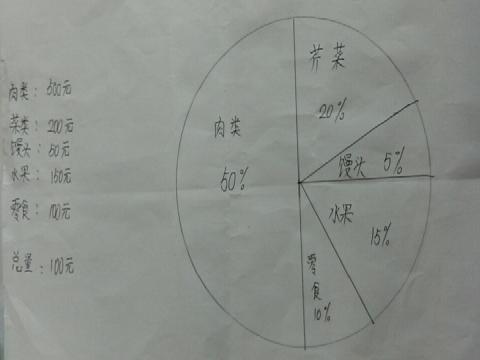 肉类：500元
菜类：200元
馒头：50元
水果：150元
零食：100元
总量：100元
芥菜
20%
肉类
50%
馒头 5%
水果
15%
零食
10%